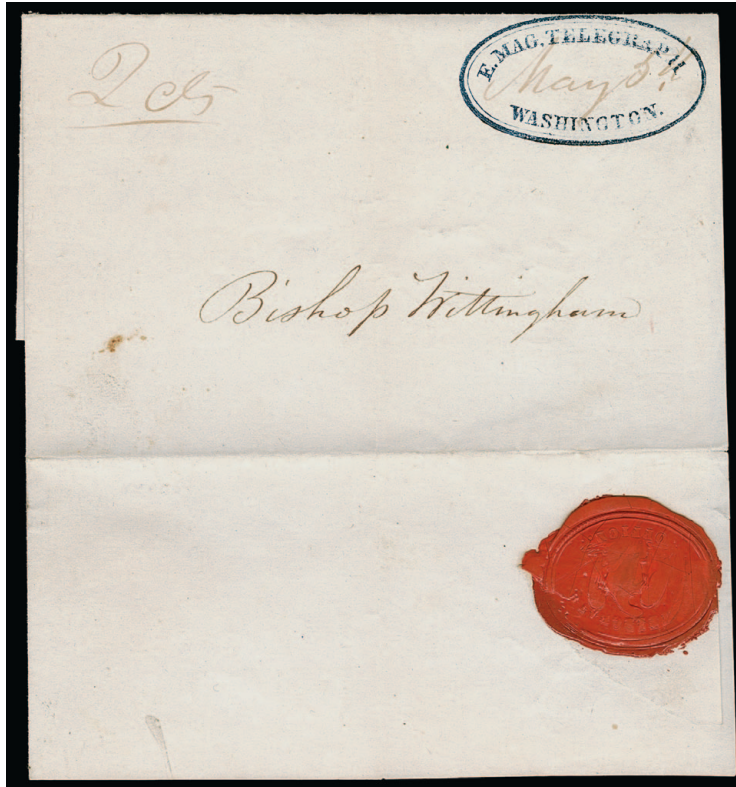 2 cts
E. MAG. TELEGRAPH.
May 5th
WASHINGTON.
Bishop Wittingham